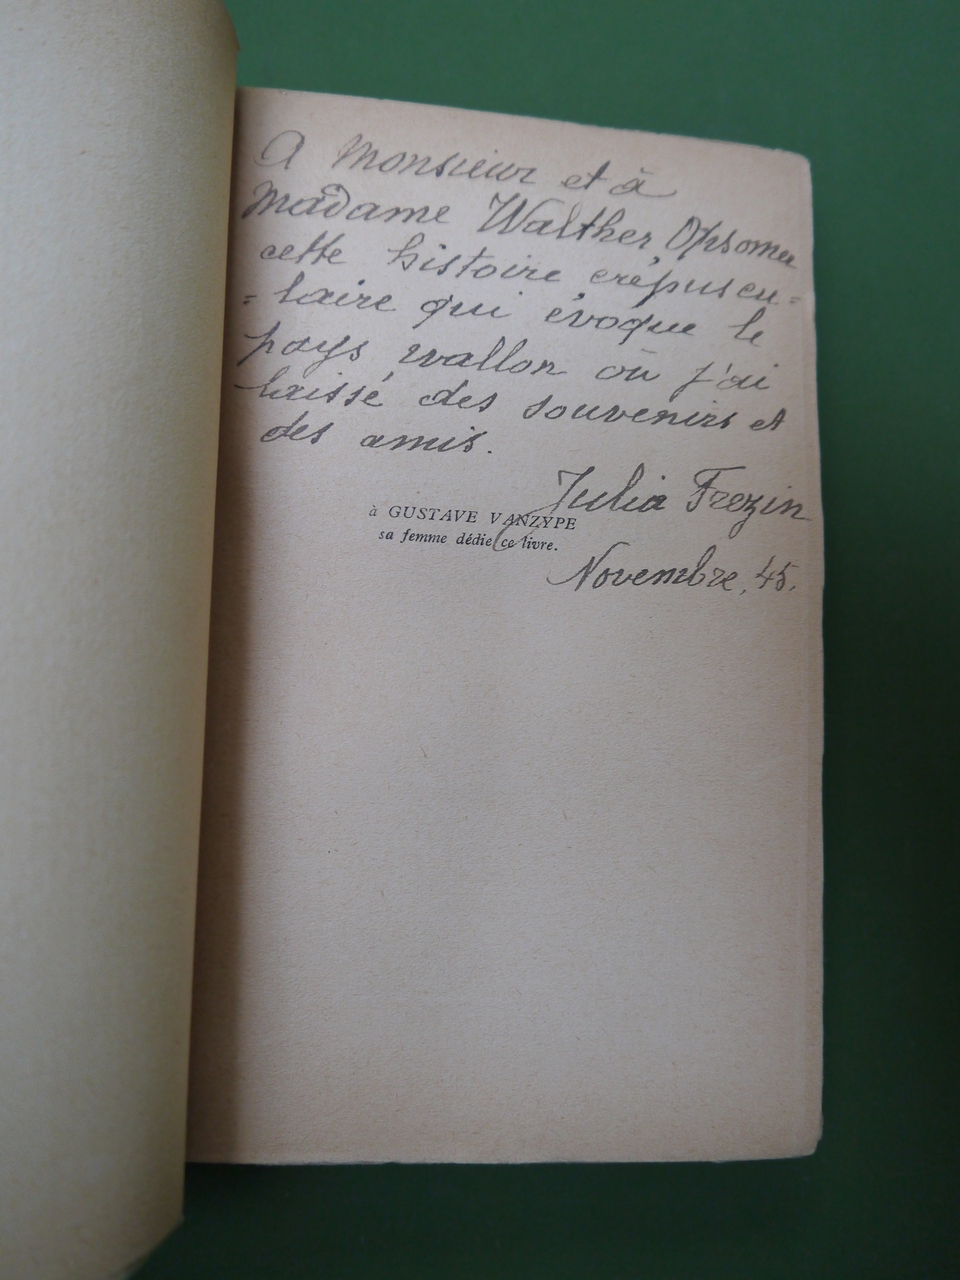 A Monsieur et à
Madame Walther Opsomer
cette histoire crépuscu=
=laire qui évoque le
pays wallon où j'ai
laissé des souvenirs et
des amis.
Julia Frezin
à GUSTAVE VANZYPE
sa femme dédie ce livre.
Novembre, 45.